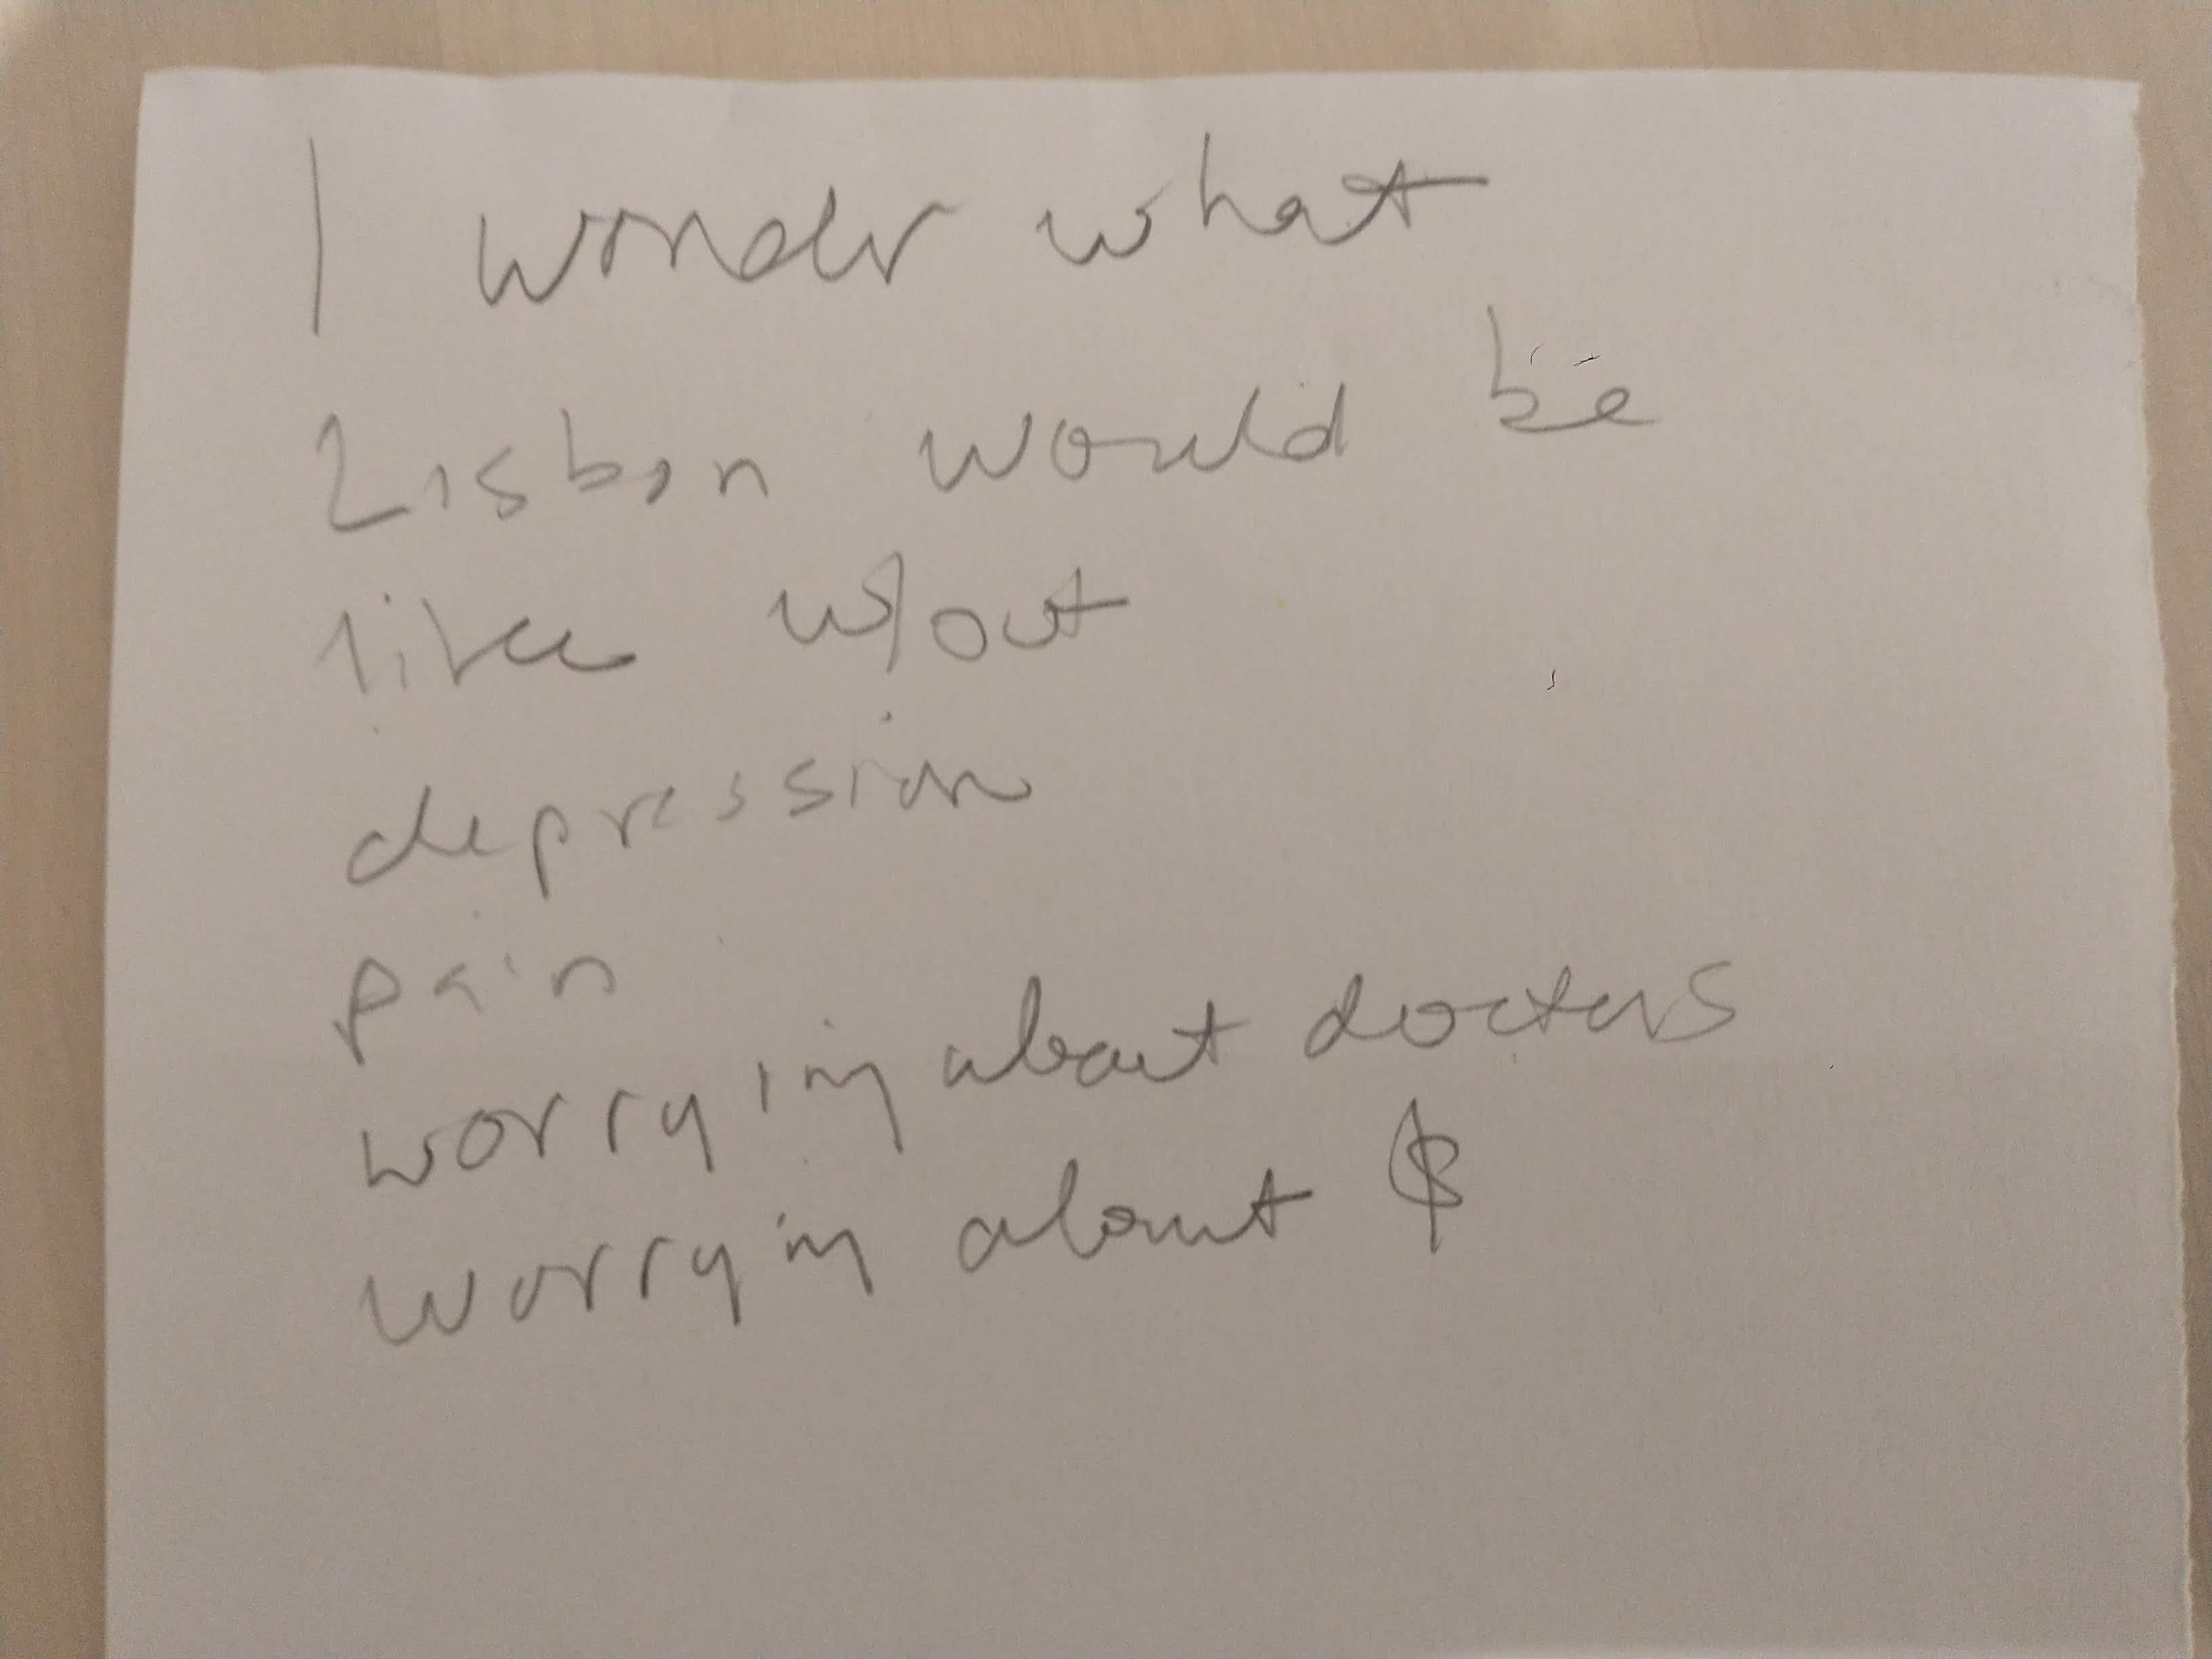 I wonder what
Lisbon would be
like w/out
depression
pain
worrying about doctors
worrying about $